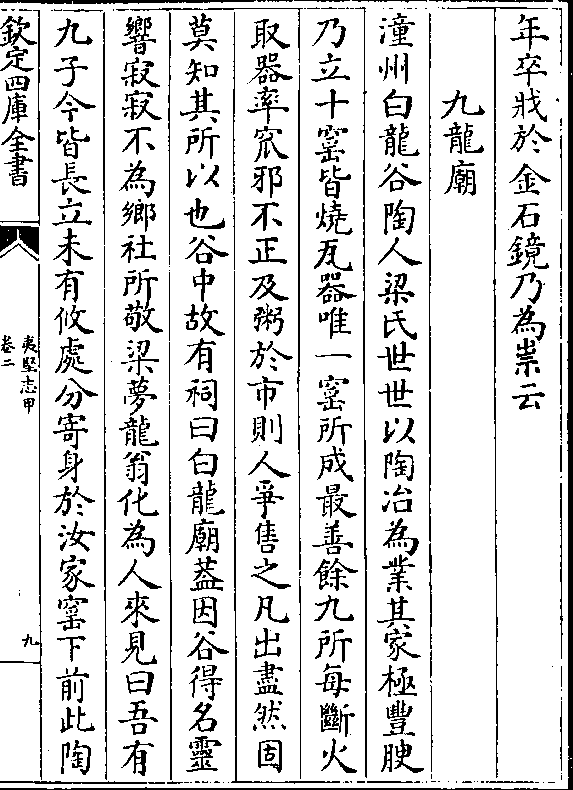 年卒戕於金石鏡乃為祟云
九龍廟
潼州白龍谷陶人梁氏世世以陶冶為業其家極豐腴
乃立十窑皆燒瓦器唯一窑所成最善餘九所每斷火
取器率窳邪不正及粥於市則人爭售之凡出盡然固
莫知其所以也谷中故有祠曰白龍廟葢因谷得名靈
響寂寂不為鄉社所敬梁夢龍翁化為人來見曰吾有
九子今皆長立未有攸處分寄身於汝家窑下前此陶
欽定四庫全書
夷堅志甲
卷二
九